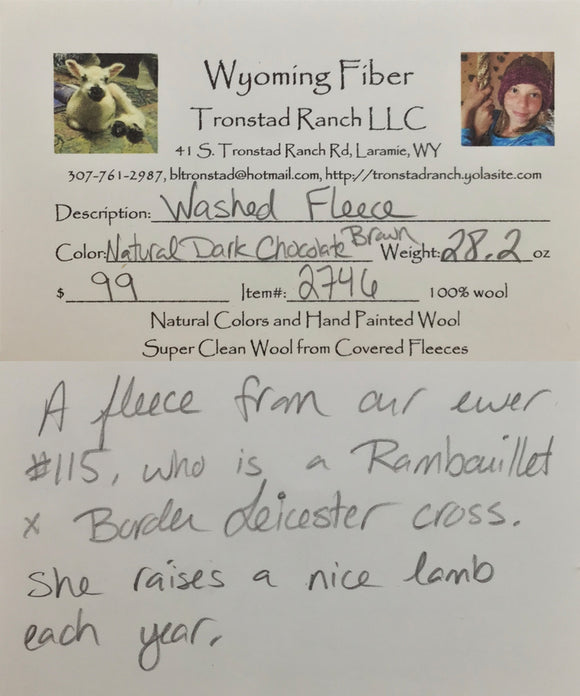 Wyoming Fiber
Tronstad Ranch LLC
41 S. Tronstad Ranch Rd, Laramie, WY
307-761-2987, bltronstad@hotmail.com, http://tronstadranch.yolasite.com
Description: Washed Fleece
Color: Natural Dark Chocolate Brown Weight: 28.2 oz
$ 99 Item#: 2746 100% wool
Natural Colors and Hand Painted Wool
Super Clean Wool from Covered Fleeces
A fleece from our ewer
#115, who is a Rambouillet
x Border Leicester cross.
She raises a nice lamb
each year.